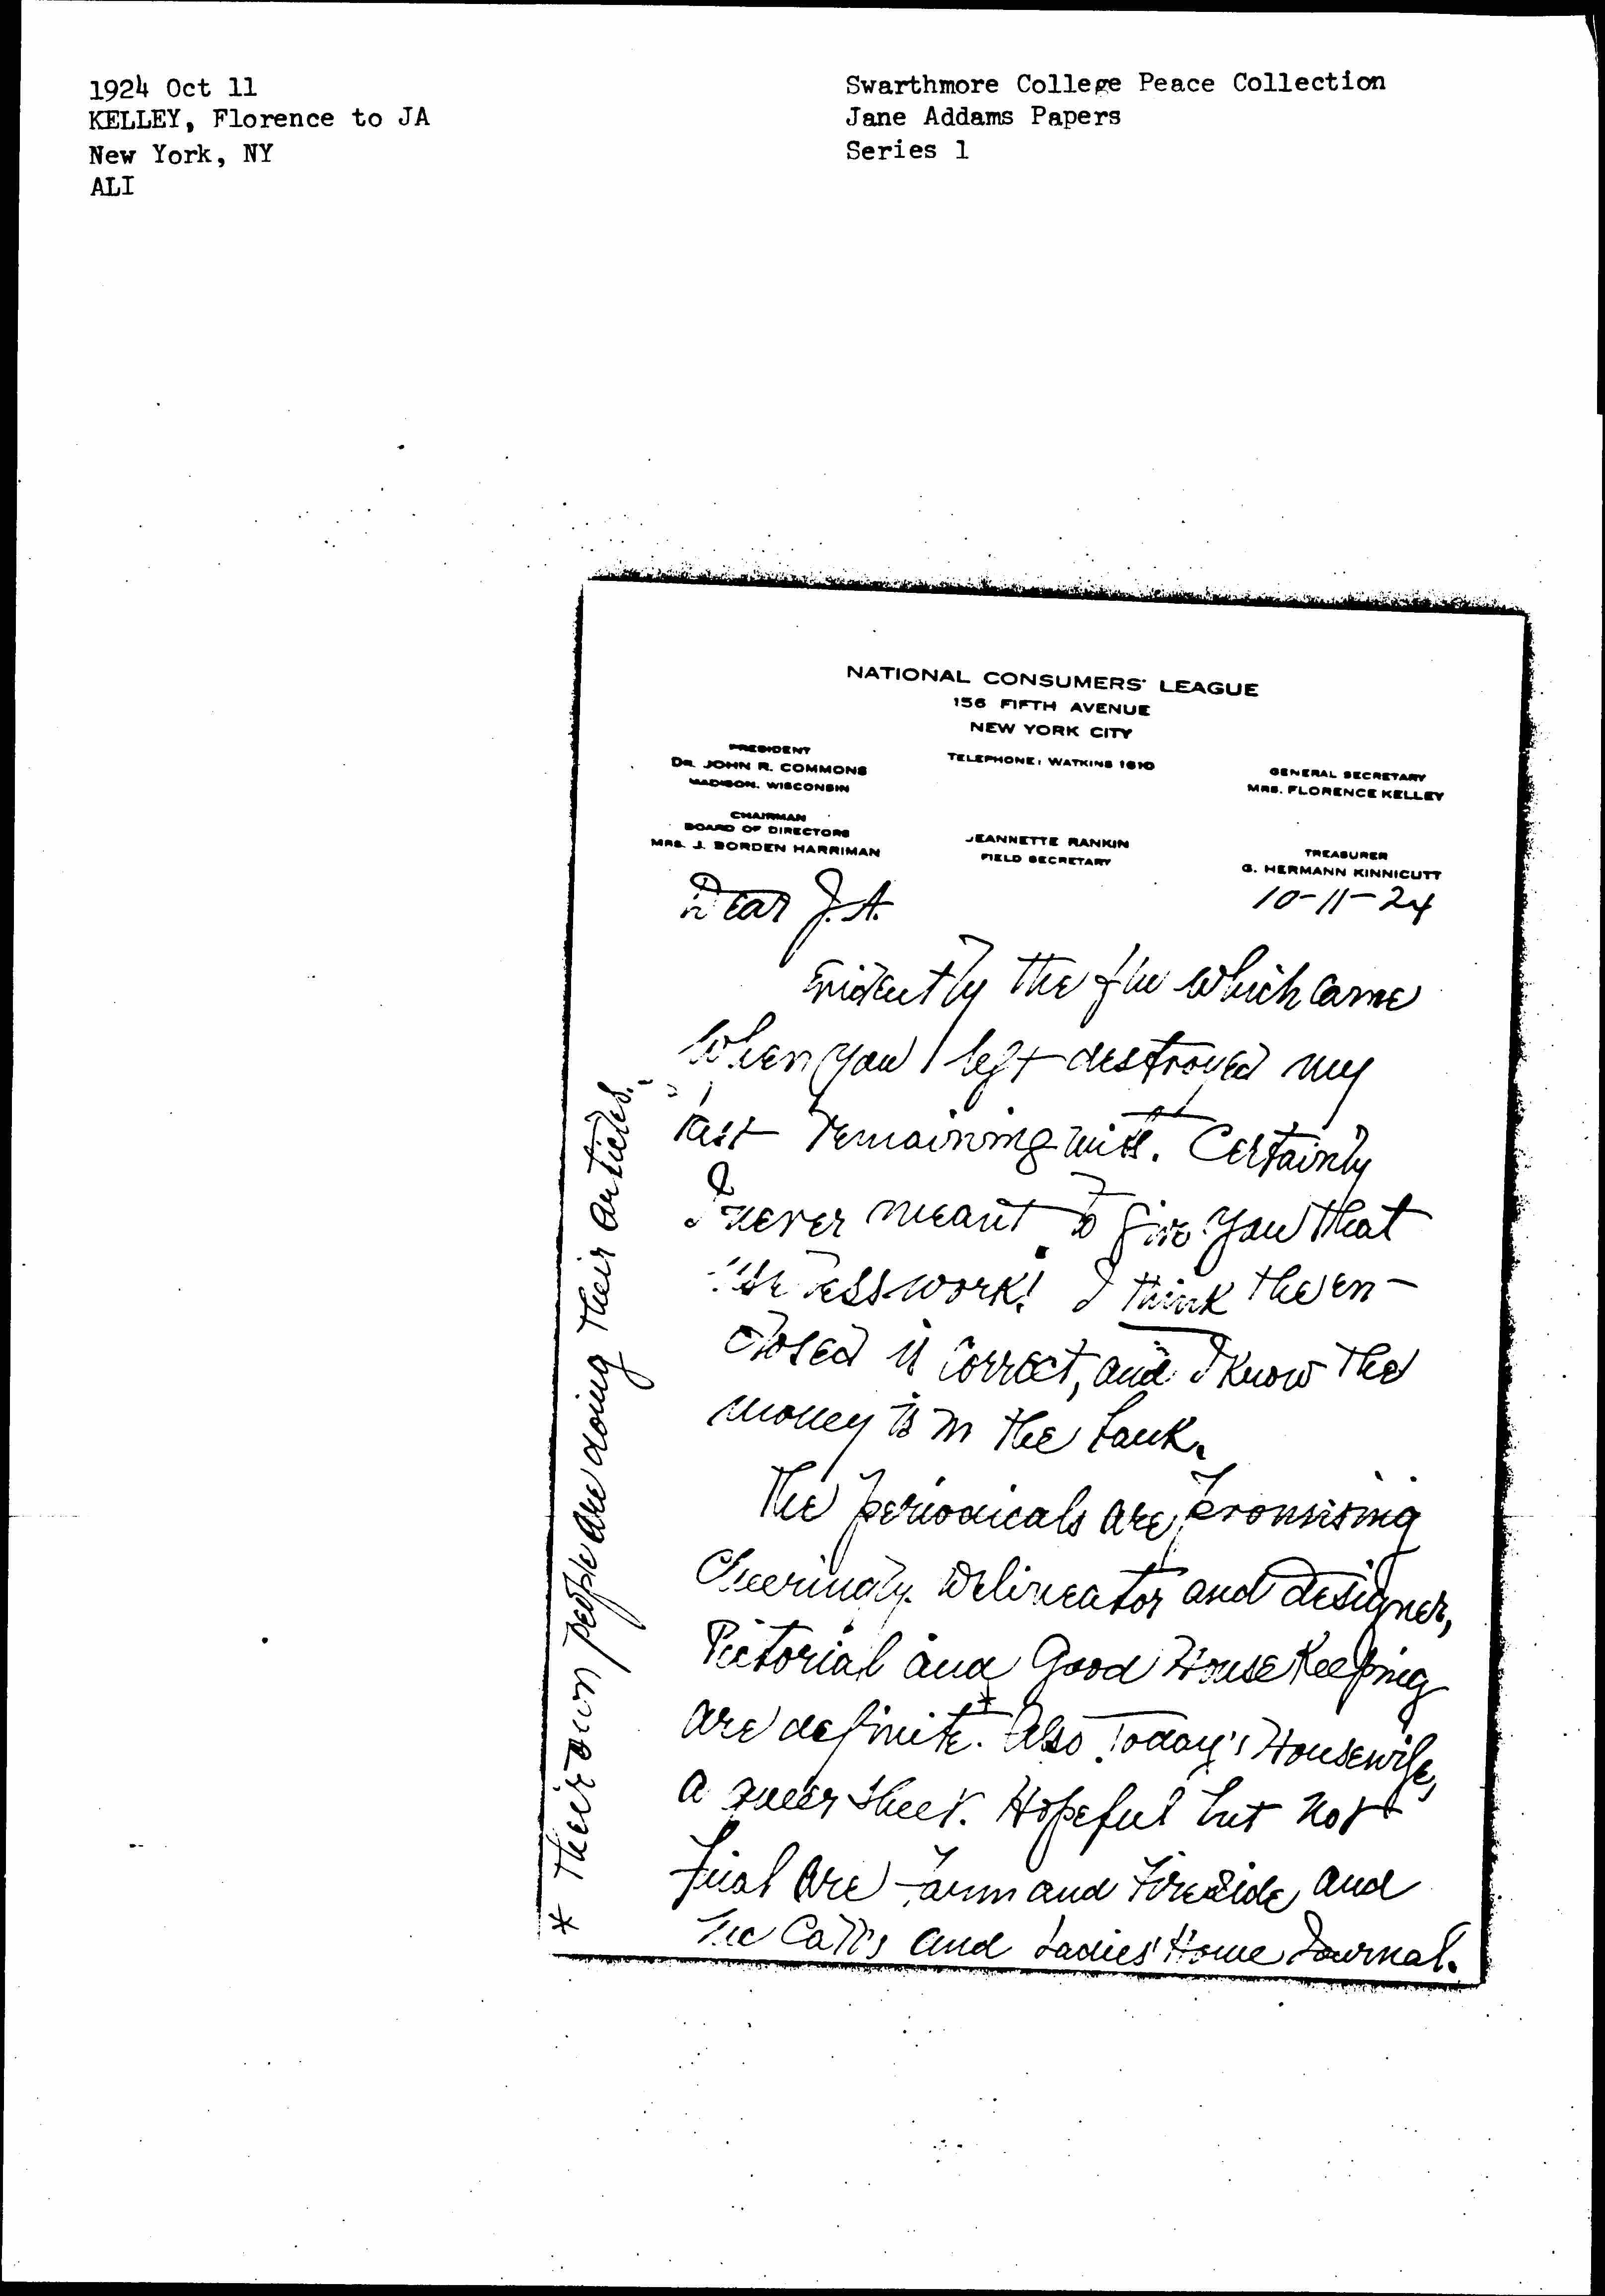 1924 Oct 11
KELLEY, Florence to JA
New York, NY
ALI
Swarthmore College Peace Collection
Jane Addams Papers
Series 1
NATIONAL CONSUMERS' LEAGUE
156 FIFTH AVENUE
NEW YORK CITY
TELEPHONE: WATKINS 1610
PRESIDENT
DR. JOHN R. COMMONS
MADISON, WISCONSIN
CHAIRMAN
BOARD OF DIRECTORS
MRS. J. BORDEN HARRIMAN
JEANNETTE RANKIN
FIELD SECRETARY
GENERAL SECRETARY
MRS. FLORENCE KELLEY
TREASURER
G. HERMANN KINNICUTT
10-11-24
Dear J.A.
Evidently the flu which came
when you left destroyed my
last remaining
Certainly
I never meant to give you that
work! I think the en-
closed is correct, and I know the
money is in the bank.
The periodicals are promising
cheeringly. Delineator and designer,
Pictorial and Good House Keeping
are definite.* Also Today's Housewife,
a queer sheet. Hopeful but not
final are Farm and Fireside and
Mc Call's and Ladies' Home Journal.
* Their own people are doing their articles.